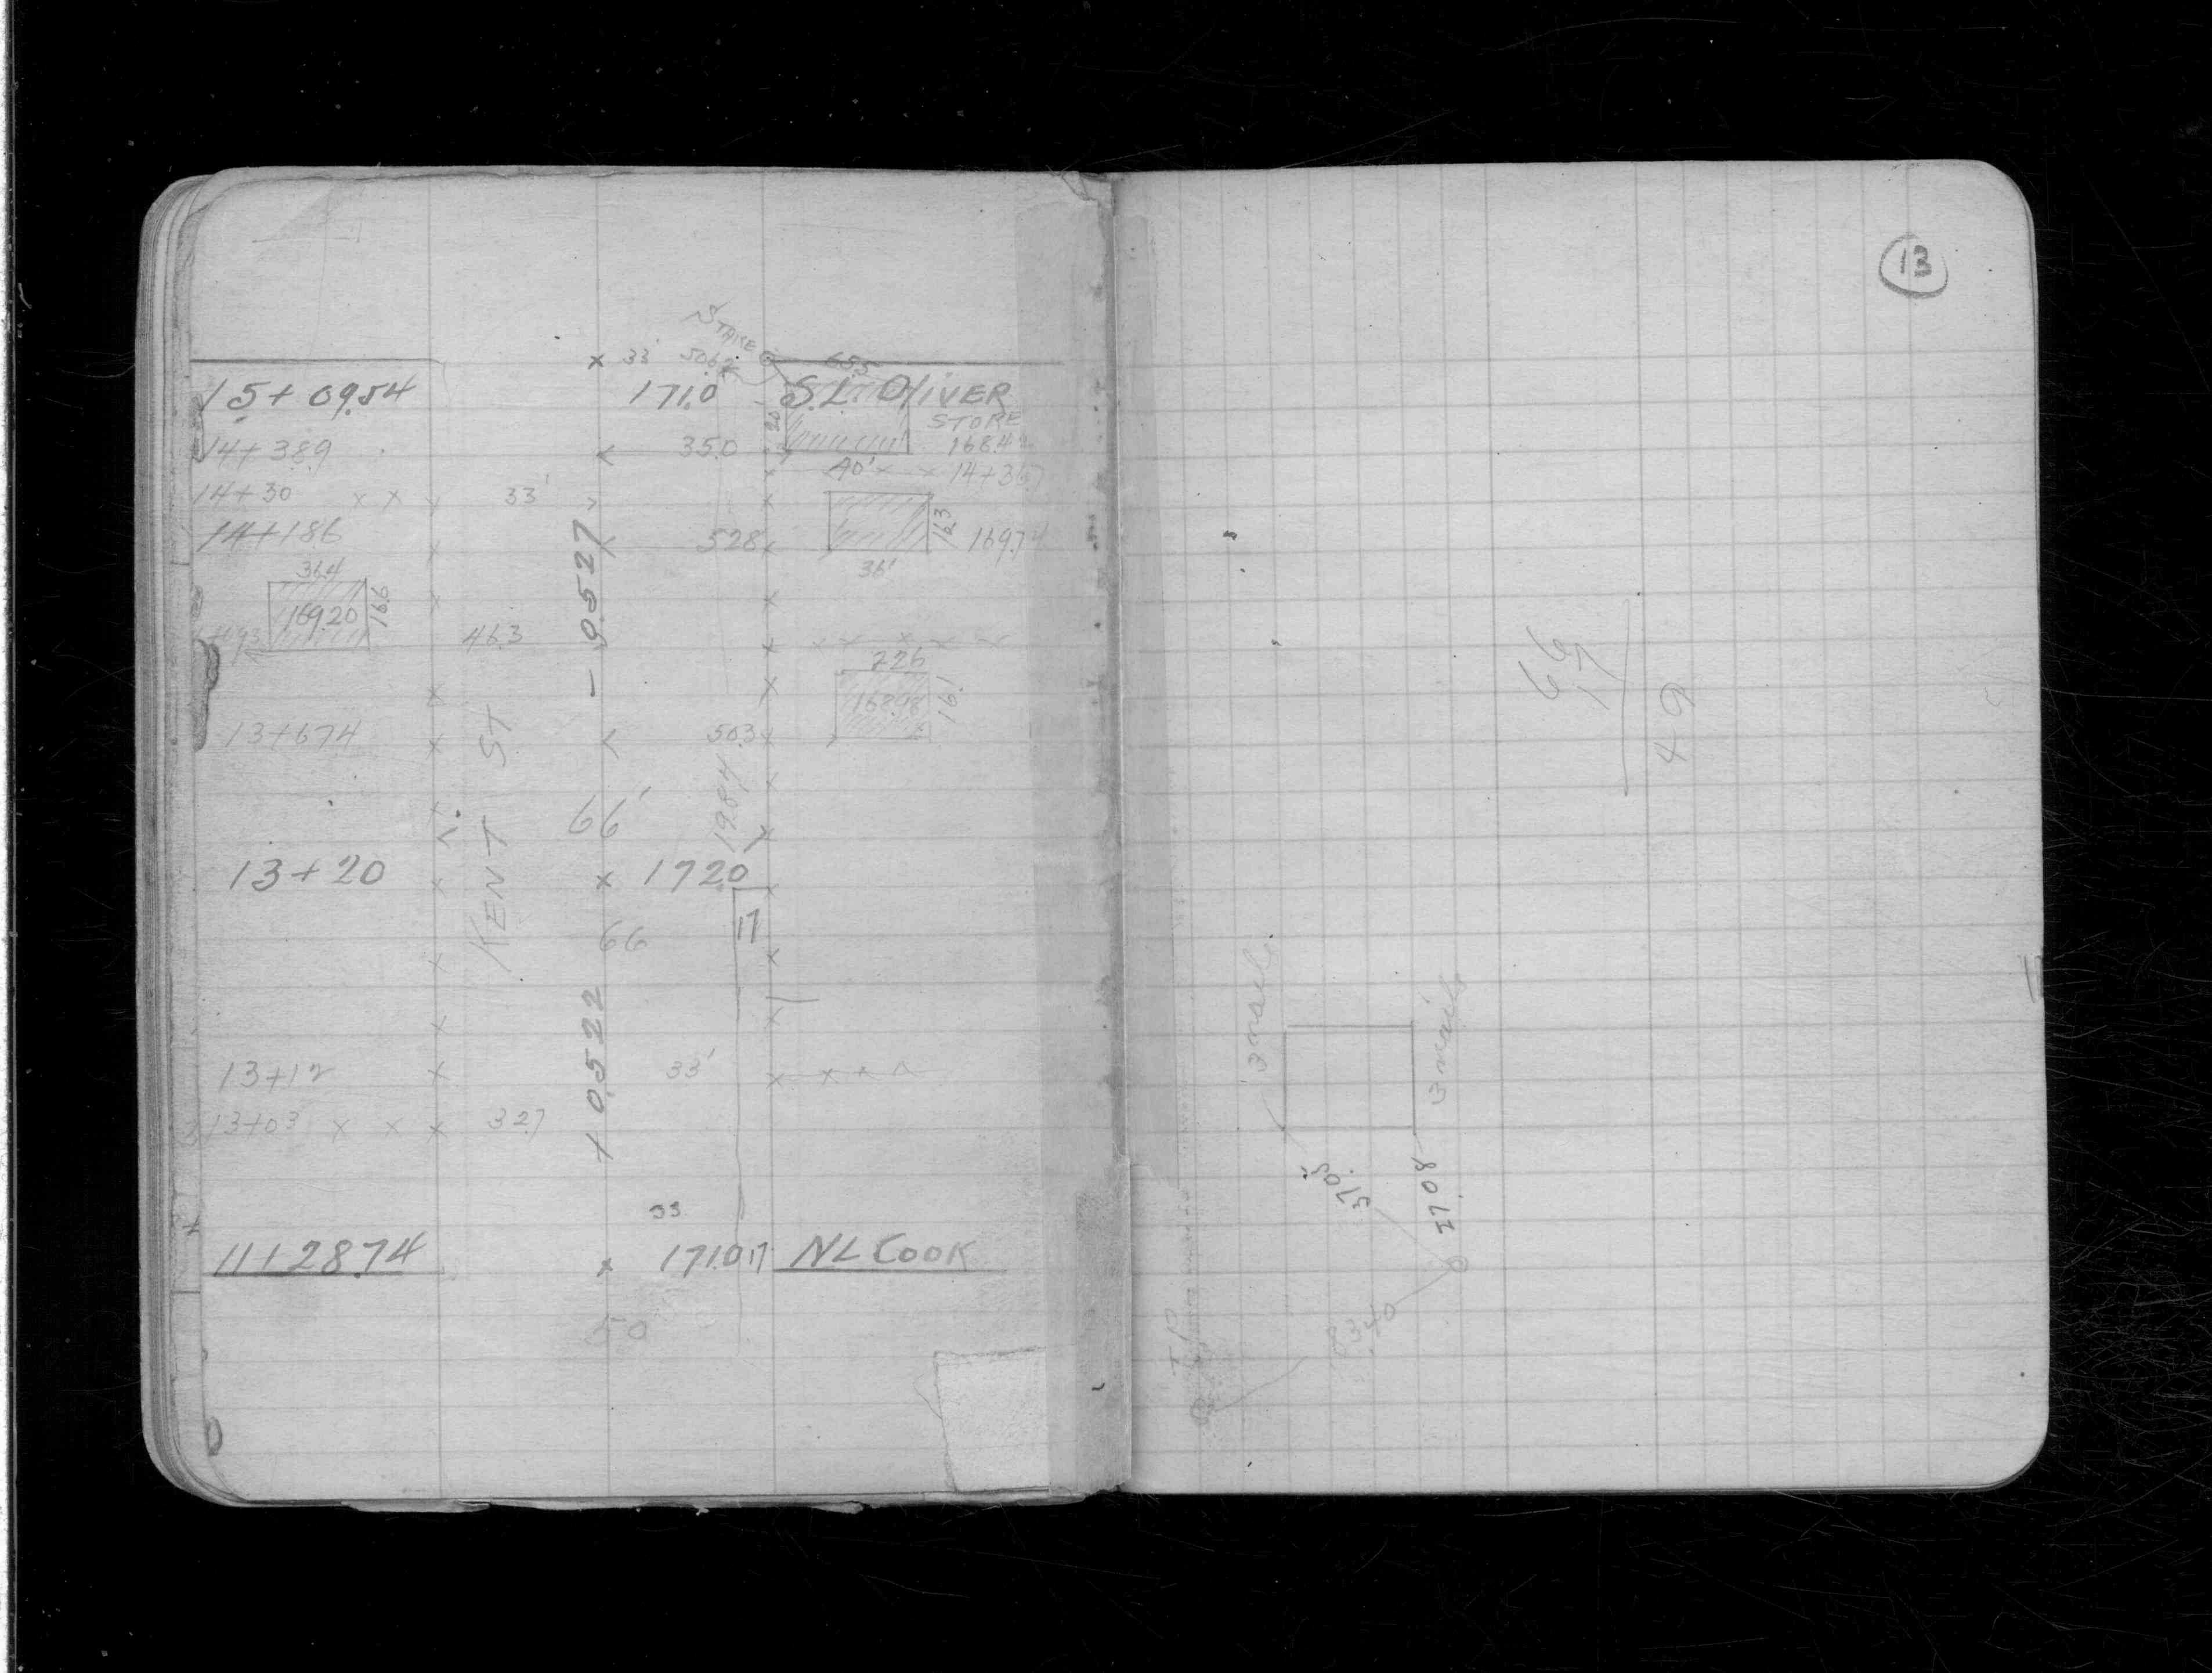 STAKE
x 33' 50.62 65.5
15+09.54 171.0 S.L. OLIVER
STORE
20
14+38.9 35.0 168.4
40' x x 14+36.7
14+30 x x x 33'
16.3
14+18.6 52.8 169.74
36.4 36'
169.20 16.6
46.3
- 0.527
22.6
168.98 16.1
13+67.4 50.3
KENT ST
66'
19.84
13+20 x 172.0
17
66
+ 0.522
13+12 x 33' x x x
13+03 x x x 32.7
33
11+28.74 x 171.0 17 NL COOK
50
13
66
17
49
3 nails
3 nails
37.05
37.08